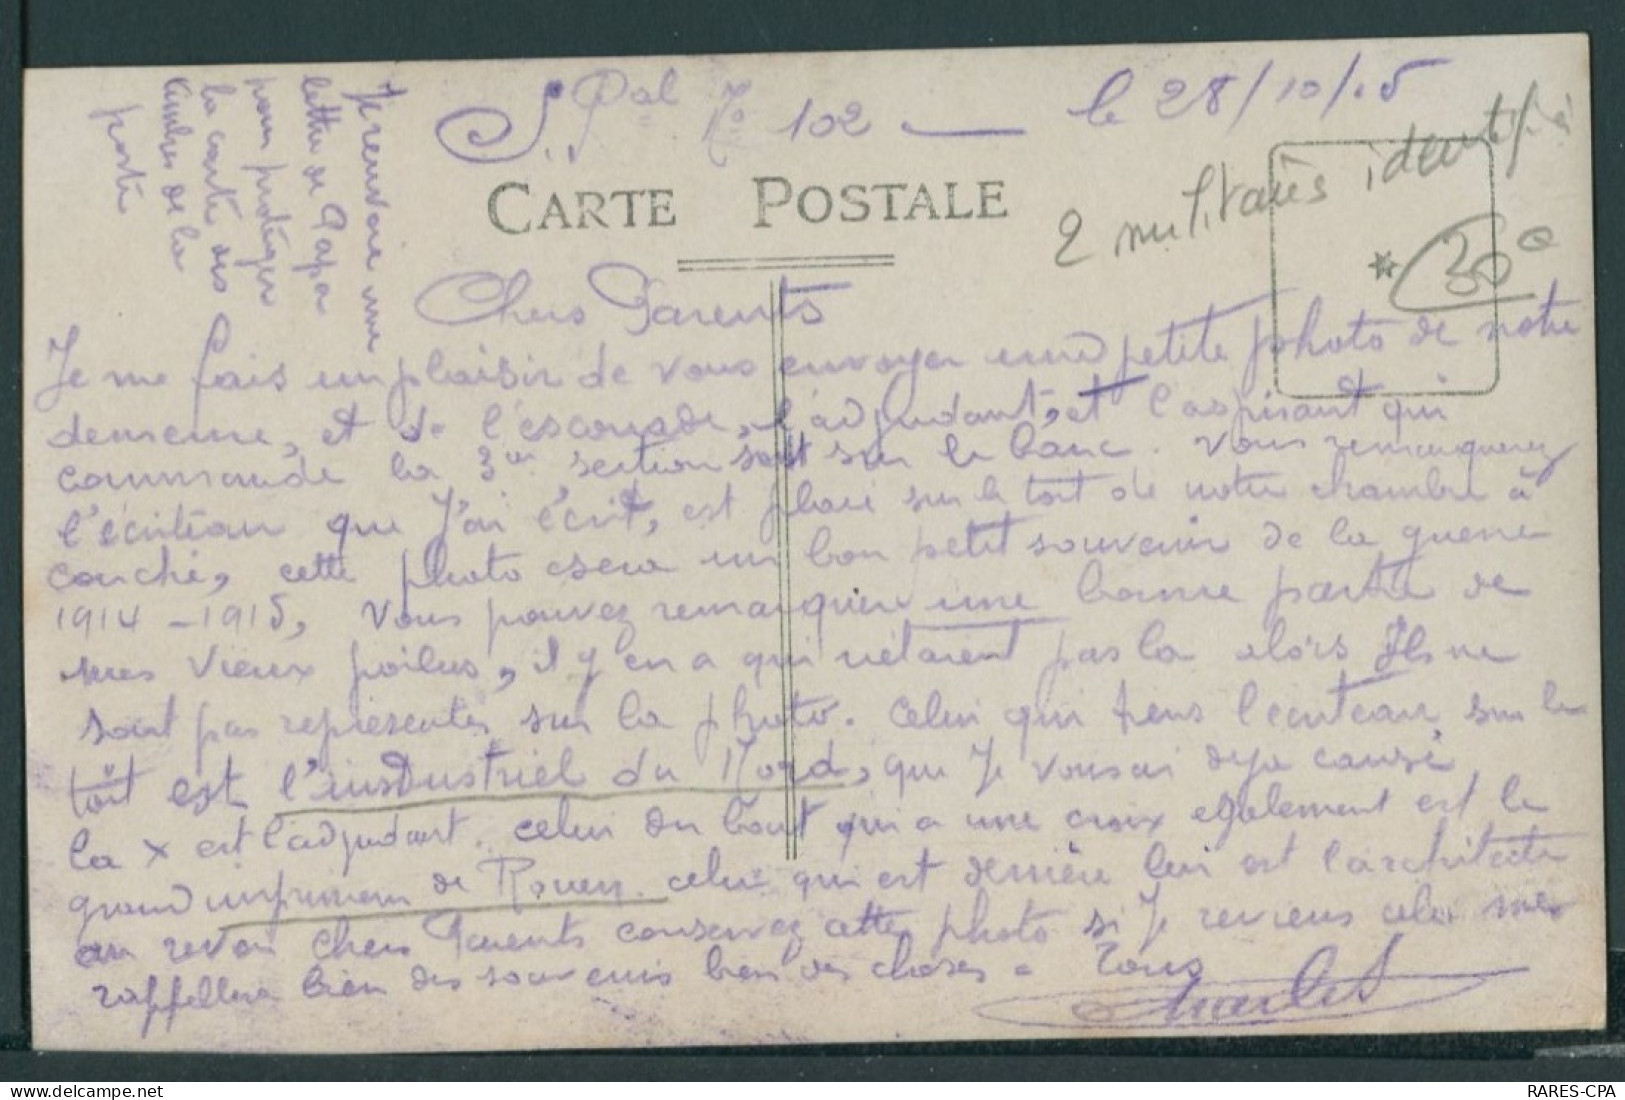 S. Pal No 102 — le 28/10/15
CARTE POSTALE
2 militaires identifié
* 350
Je renvoie une
lettre de Papa
pour protéger
la carte des
timbres de la
poste
Chers Parents
Je me fais un plaisir de vous envoyer une petite photo de notre
demeure, et de l'escouade, l'adjudant, et l'aspirant qui
commande la 3em section sont sur le banc. Vous remarquerez
l'écriteau que J'ai écrit, est placé sur le toit de notre chambre à
couché, cette photo sera un bon petit souvenir de la guerre
1914-1915, Vous pouvez remarquer une bonne partie de
mes vieux poilus, il y en a qui n'étaient pas la alors Ils ne
sont pas représentés sur la photo. Celui qui tiens l'écriteau sur le
toit est l'industriel du Nord, que Je vous ai deja causé
la x est l'adjudant. celui du bout qui a une croix également est le
grand imprimeur de Rouen. celui qui est derrière lui est l'architecte
au revoir Chers Parents conservez cette photo si Je reviens cela me
rappellera bien des souvenirs bien des choses a Tous
Charles
RARES-CPA